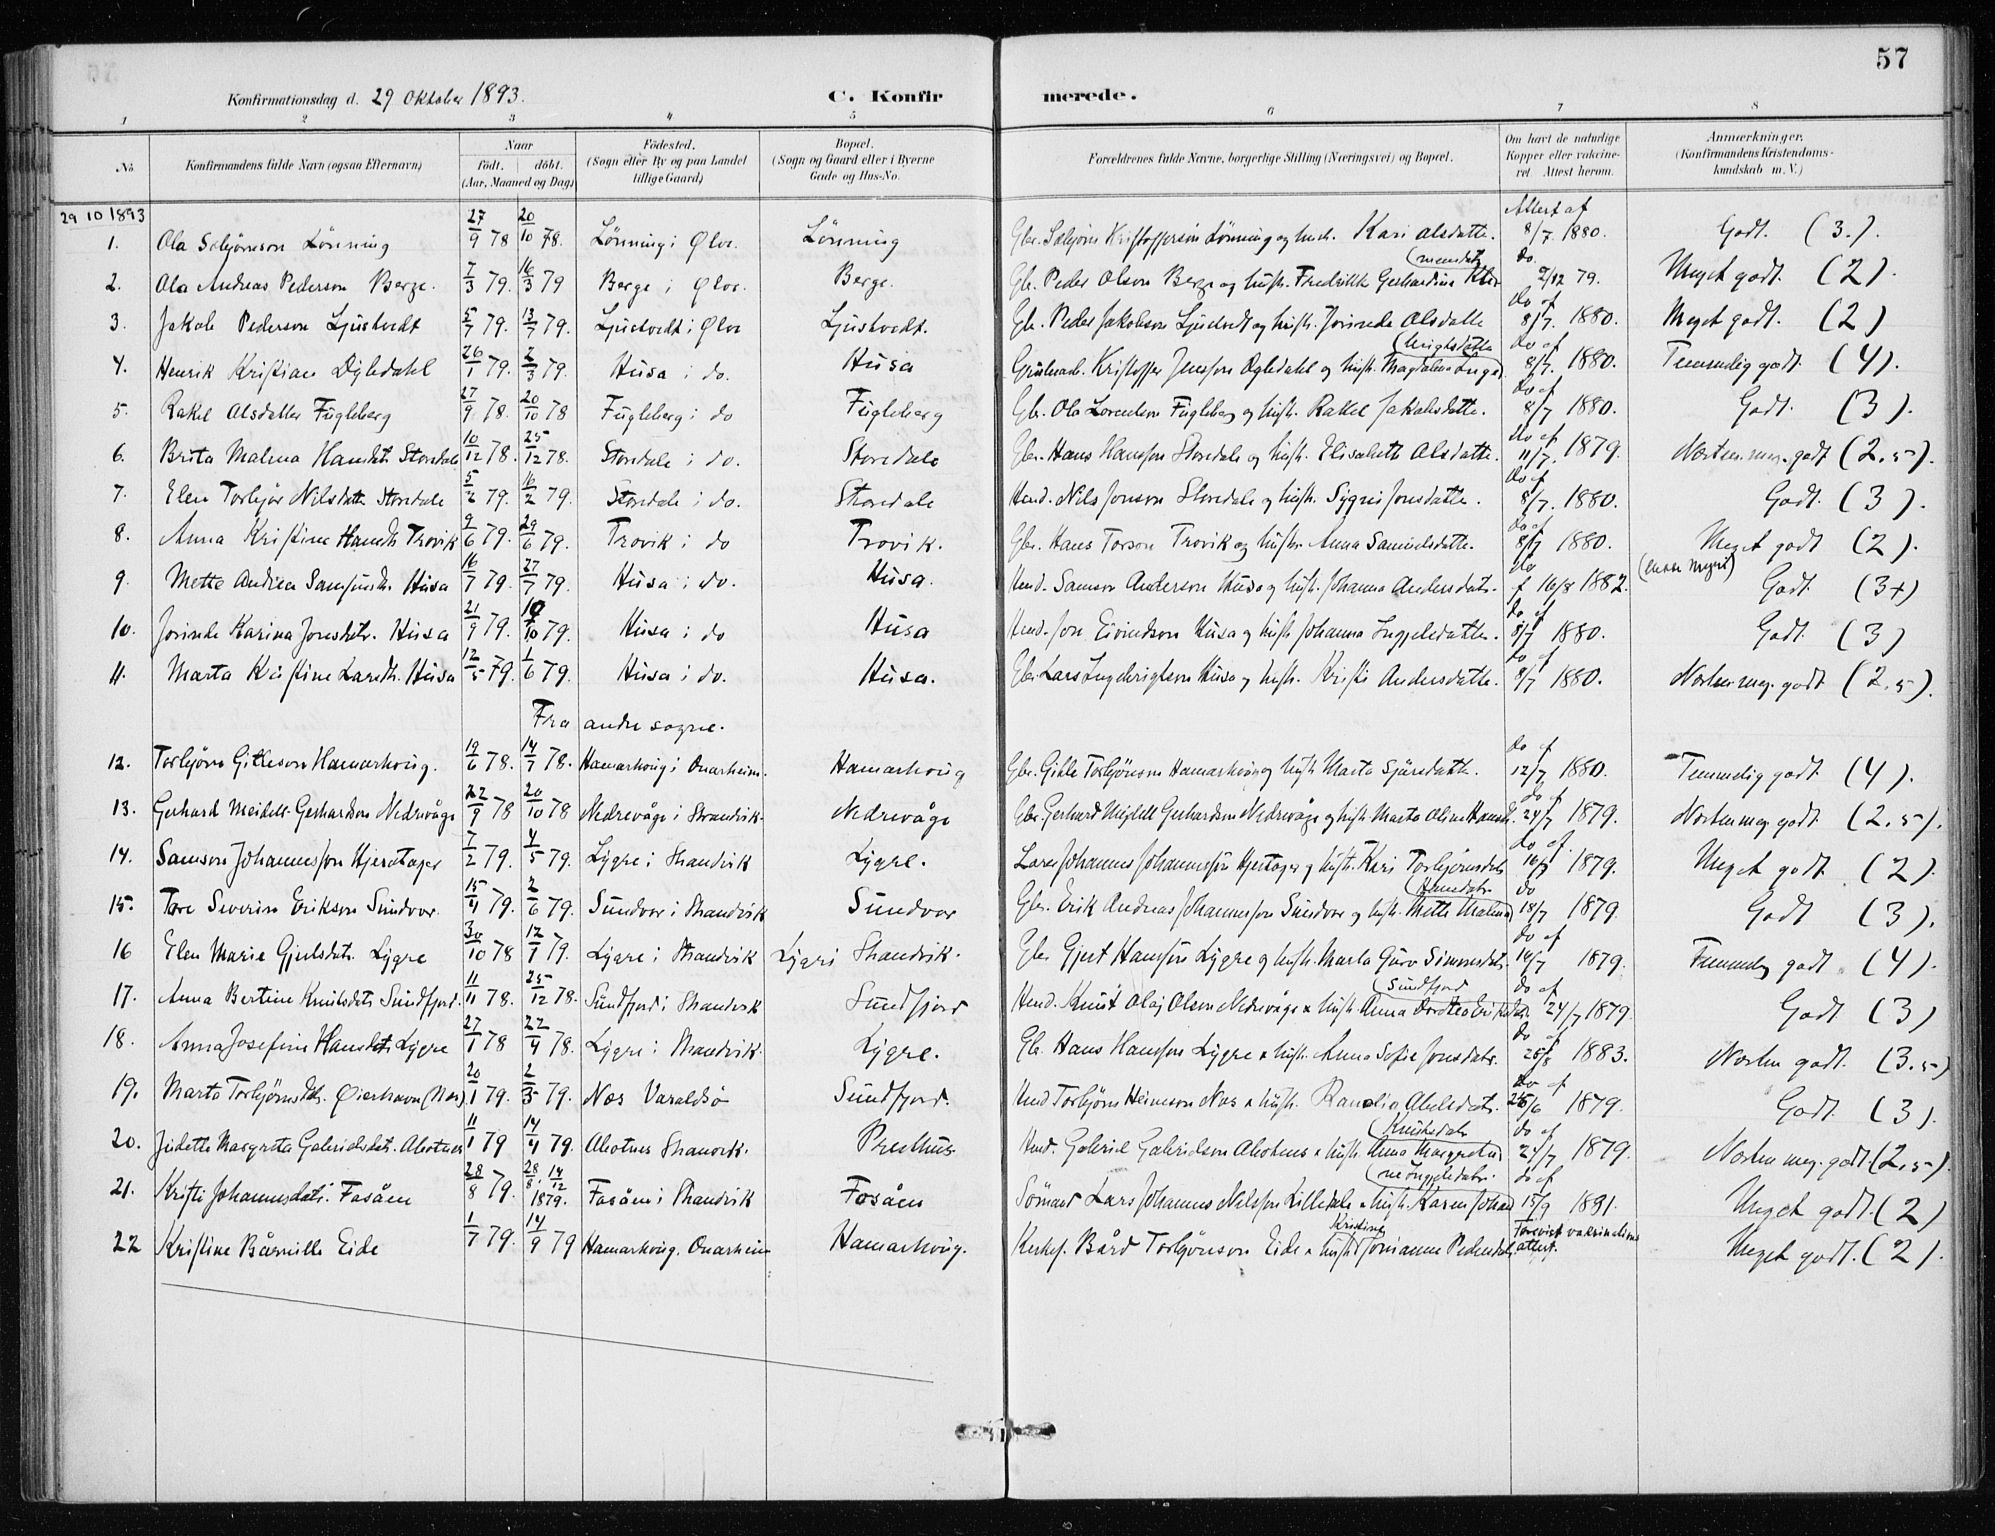 57
Konfirmationsdag d. 29 Oktober 1893.
C. Konfirmerede.
1 2 3 4 5 6 7 8
No
Konfirmandens fulde Navn (ogsaa Efternavn)
Naar
født. døbt.
(Aar, Maaned og Dag)
Fødested.
(Sogn eller By og paa Landet
tillige Gaard)
Bopæl.
(Sogn og Gaard eller i Byerne
Gade og Hus-No.
Forældrenes fulde Navne, borgerlige Stilling (Næringsvei) og Bopæl.
Om havt de naturlige
Kopper eller vakcine-
ret. Attest herom.
Anmærkninger.
(Konfirmandens Kristendoms-
kundskab m. V.)
29 10 1893
1. Ola Lönning 27/9 78 20/10 78. Lönning i Ølve. Lönning Kristofferson Lönning og hust. Kari Olsdatter. Attest af 8/7. 1880. Godt. (3.).
2. Ola Andreas Pederson Berge. 7/3 79. 16/3 79 Berge i Ølve. Berge. Gbr. Peder Olson Berge og hust. Fredrikke Gerhardine do. 2/12 79. Meget godt. (2).
3. Jakob Pederson Ljustvedt 5/7 79. 13/7 79. Ljustvedt i Ølve Ljustvedt. Gbr. Peder Jakobson Ljustvedt og hust. Jorinde Olsdatter do af 8/7. 1880. Meget godt. (2)
4. Henrik Kristian 26/1 79. 2/3 79. Husa i do. Husa Kristoffer Jensson og hust. Magdalena do af 8/7. 1880. Temmelig godt. (4).
5. Rakel Olsdatter Fugleberg 27/9 78. 20/10 78 Fugleberg i do Fugleberg Gbr. Ola Lorentson Fugleberg og hust. Rakel Jakobsdatter. do af 8/7 1880. Godt. (3).
6. Brita Malena Hansdt. Storedale 10/12 78. 25/12 78. Storedale i do. Storedale Gbr. Hans Hansson Storedale og hust. Elisabeth Olsdatter. do af 11/7. 1879. Næsten meg. godt (2,5).
7. Elen Torbjør Nilsdatter Storedale 5/2 79. 16/2 79. Storedale i do. Storedale Husd. Nils Jonson Storedale og hust. Sygni Jonsdatter. do af 8/7. 1880. Godt. (3).
8. Anna Kristine Hansdt. Trovik 9/6 79. 29/6 79. Trovik i do Trovik. Gbr. Hans Torson Trovik og hust. Anna Samuelsdatter. do af 8/7 1880. Meget godt (2).
9. Mette Andrea Samsonsdt. Husa 16/7 79. 27/7 79. Husa i do. Husa. Husd. Samson Anderson Husa og hust. Johanna Andersdatr. do f 16/8 1882. Godt. (3+)
10. Jorinde Karina Jonsdatr. Husa 21/9 79. 10/10 79. Husa i do Husa Husd. Jon Eivindson Husa og hust. Johanna Ingjeldsdatter. do af 8/7 1880. Godt. (3)
11. Marta Kristine Larsdt. Husa 12/5 79. 1/6 79. Husa i do. Husa. Gbr. Lars Ingebrigtson Husa og hust. Kristi Andersdatter. do af 8/7 1880. Næsten meg. godt (2,5).
Fra andre sogne.
12. Torbjörn Gitleson Hamarhoug. 19/6 78. 14/7 78. Hamarhoug i Onarheim. Hamarhoug Gbr. Gitle Torbjörnson Hamarhoug og hust. Marta Sjursdatter. do af 12/7 1880. Temmelig godt. (4).
13. Gerhard Meidell Gerhardson Nedrevåge 22/9 78 20/10 78 Nedrevåge i Strandvik. Nedrevåge Gbr. Gerhard Meidell Gerhardson Nedrevåge og hust. Marta Oline do af 24/7 1879. Næsten meg. godt (2,5).
14. Samson Johannesson Hjertager 7/2 79. 4/5 79. Lygre i Strandvik Lygre. Johannes Johannesson Hjertager og hust. Kari Torbjörnsdatr do af. 1879. Meget godt. (2).
15. Tore Severin Erikson Sundvor 15/4 79. 2/6 79. Sundvor i Strandvik Sundvor Gbr. Erik Andreas Johannesson Sundvor og hust. Mette Malena Hansdatr. do 18/7 1879. Godt (3).
16 Elen Marie Gjertsdatr. Lygre 30/10 78 12/1 79. Lygre i Strandvik Lygre i Strandvik. Gbr. Gjert Hansson Lygre og hust. Marta Guro Simonsdatr. do af 1879. Temmelig godt. (4).
17. Anna Bertine Knutsdatr Sundfjord. 11/11 78. 25/12 78. Sundfjord i Strandvik Sundfjord Husd. Knut Olaj Olson Nedrevåge & hust. Anna Dortea (Sundfjord do af 24/7 1879. Godt (3)
18. Anna Josefine Hansdatr Lygre 27/1 78 22/4 78. Lygre i Strandvik. Lygre. Gbr. Hans Hansson Lygre & hust. Anna Sofie Jonsdatr. do af 25/8 1883. Næsten godt. (3,5)
19. Marta Torbjörnsdtr. Øierhavn (Næs) 20/1 79. 2/3 79. Næs Varaldsö Sundfjord. Husd Torbjörn Heineson Næs & hust. Abelsdatr. do af 1879. Godt. (3).
20. Judette Margreta Gabrielsdatr. 11/1 79 14/4 79. Strandvik. Presthus Husd. Gabriel Gabrielson & hust. Anna Margreta Knutsdatr do af 24/7 1879. Næsten meg. godt. (2,5).
21. Kristi Johannesdatr. Fosåen 28/8 79. 28/8. 14/12 1879. Fosåen i Strandvik Fosåen Sömand Lars Johannes Nilsson Lilledale & hust. Karen Johanne Ingjeldsdatr. do af 15/9 1891. Meget godt. (2)
22 Kristine Bårnille Eide 1/7 79. 14/9 79 Hamarhoug. Onarheim Hamarhoug. Kirkes. Bård Torbjörnson Eide & hust. Kristine Jonianne Pedersdatr. Forevist vakcinations attest. Meget godt. (2).